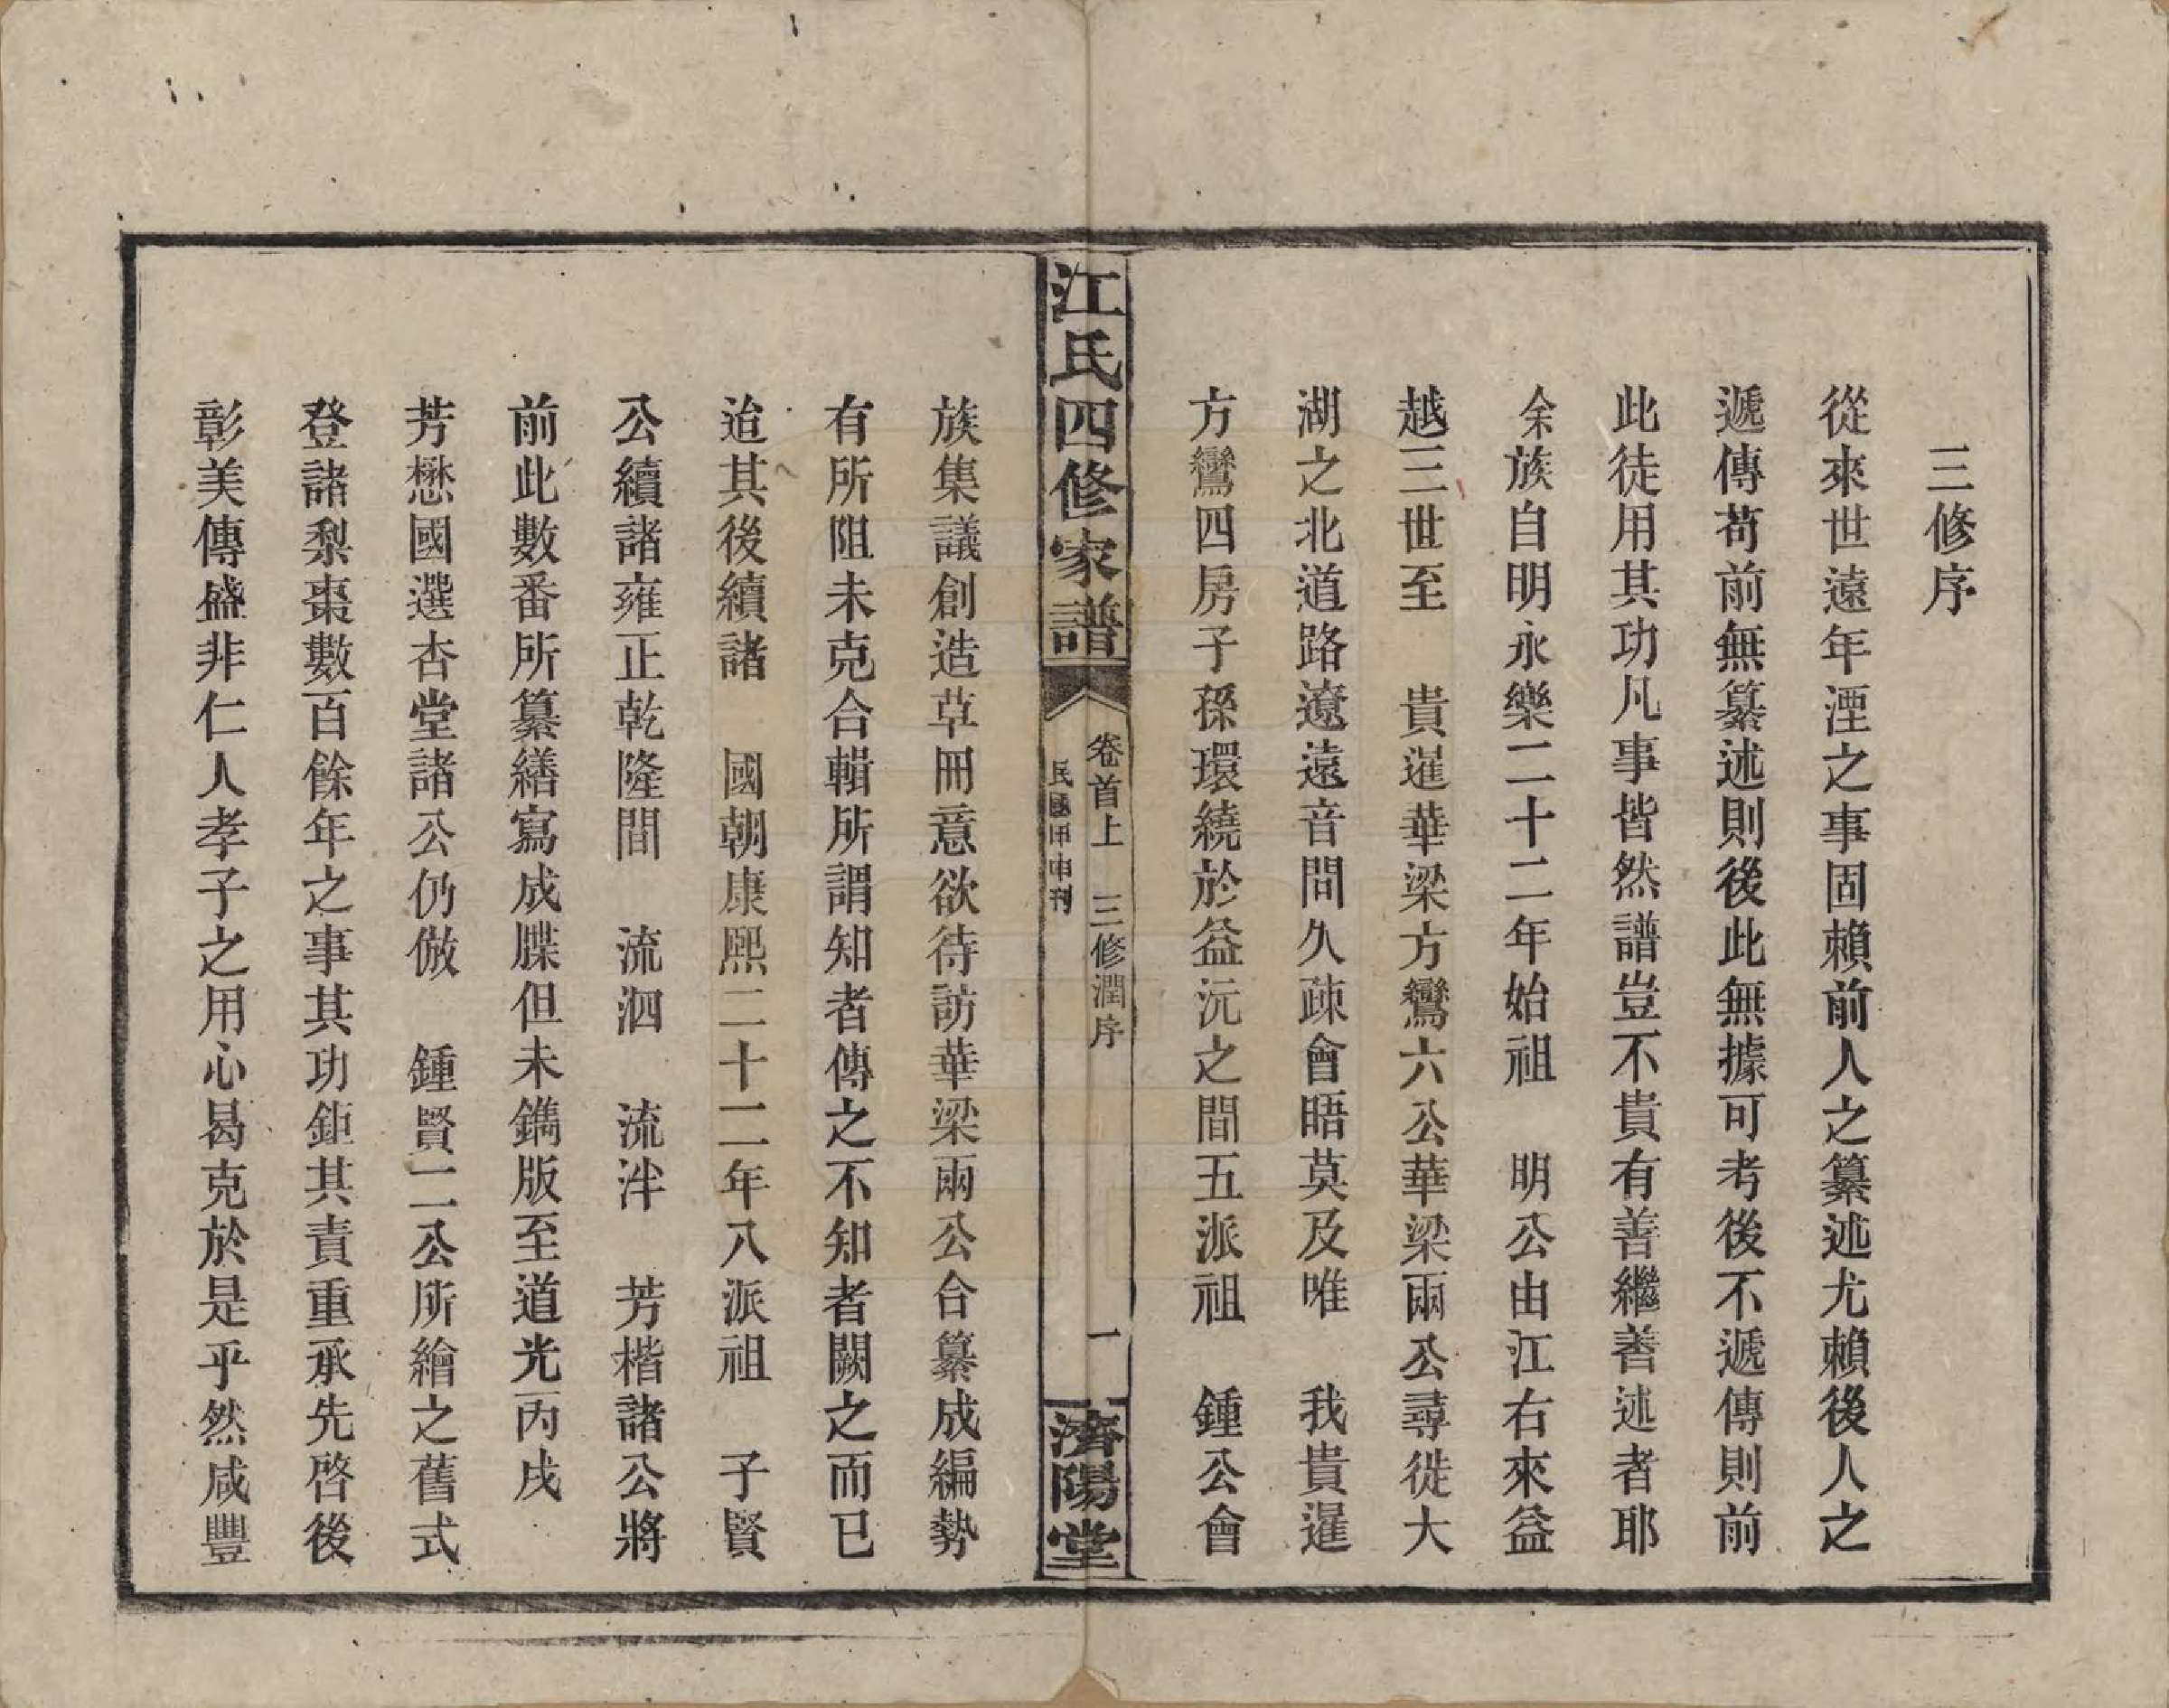 三修序
從來世遠年湮之事固賴前人之纂述尤賴後人之
遞傳苟前無纂述則後此無據可考後不遞傳則前
此徒用其功凡事皆然譜豈不貴有善繼善述者耶
余族自明永樂二十二年始祖　明公由江右來益
越三世至　貴暹華梁方鸞六公華梁兩公尋徙大
湖之北道路遼遠音問久疎會晤莫及唯　我貴暹
方鸞四房子孫環繞於益沅之間五派祖　鍾公會
江氏四修家譜　卷首上　三修潤序　一　濟陽堂
民國甲申刊
族集議創造草冊意欲待訪華梁兩公合纂成編勢
有所阻未克合輯所謂知者傳之不知者闕之而已
迨其後續諸　國朝康熙二十二年八派祖　子賢
公續諸雍正乾隆間　流泗　流泮　芳楷諸公將
前此數番所纂繕寫成牒但未鐫版至道光丙戌
芳懋國選杏堂諸公仍倣　鍾賢二公所繪之舊式
登諸梨棗數百餘年之事其功鉅其責重承先啓後
彰美傳盛非仁人孝子之用心曷克於是乎然咸豐